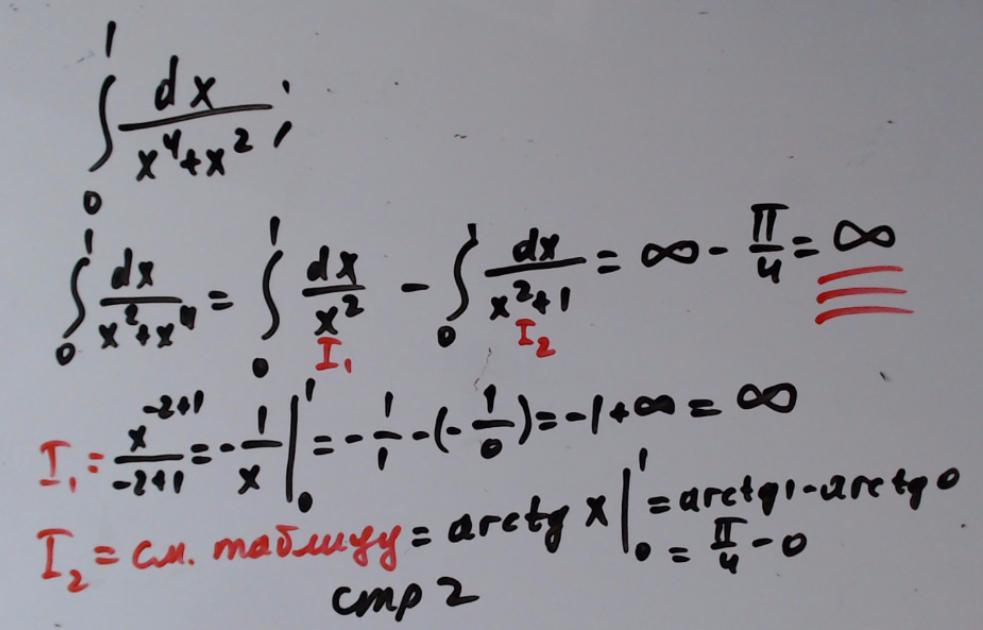 ∫₀¹ dx/(x⁴+x²);
∫₀¹ dx/(x²+x⁴) = ∫₀¹ dx/x² - ∫₀¹ dx/(x²+1) = ∞ - π/4 = ∞
I₁ I₂
I₁ = x⁻²⁺¹/(-2+1) = -1/x |₀¹ = -1/1 - (-1/0) = -1+∞ = ∞
I₂ = см. таблицу = arctg x |₀¹ = arctg 1 - arctg 0
= π/4 - 0
стр 2